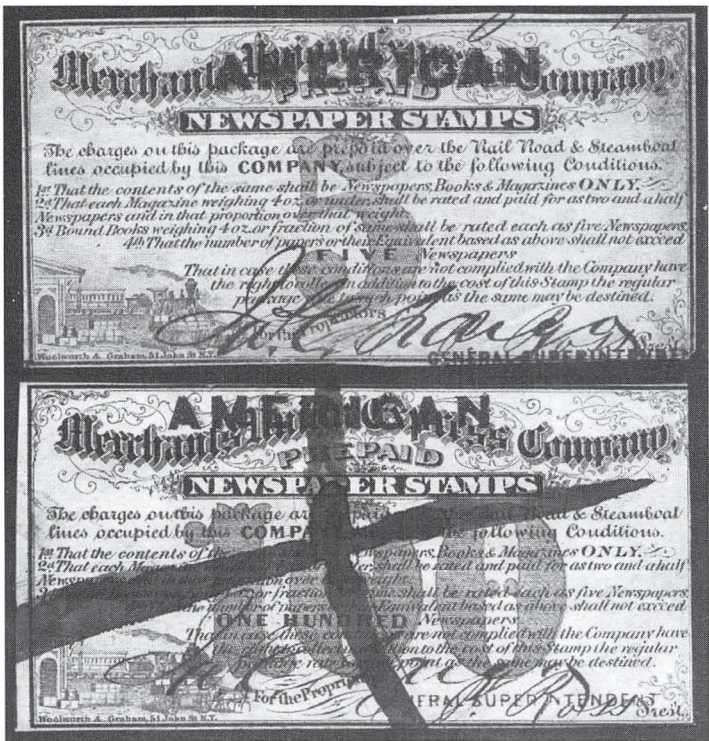 AMERICAN
Merchants Union Express Company.
PREPAID
NEWSPAPER STAMPS
The charges on this package are prepaid over the Rail Road & Steamboat
lines occupied by this COMPANY subject to the following Conditions.
1st That the contents of the same shall be Newspapers, Books & Magazines ONLY.
2d That each Magazine weighing 4 oz. or under, shall be rated and paid for as two and a half
Newspapers and in that proportion over that weight.
3d Bound Books weighing 4 oz. or fraction of same shall be rated each as five Newspapers.
4th That the number of papers or their Equivalent based as above shall not exceed
FIVE Newspapers
That in case these conditions are not complied with the Company have
the right to collect in addition to the cost of this Stamp the regular
package rate to each point as the same may be destined.
For the Proprietors
J. C. Fargo
Prest.
GENERAL SUPERINTENDENT
Woolworth & Graham, 51 John St. N.Y.
AMERICAN
Merchants Union Express Company.
PREPAID
NEWSPAPER STAMPS
The charges on this package are prepaid over the Rail Road & Steamboat
lines occupied by this COMPANY the following Conditions.
1st That the contents of the Newspapers, Books & Magazines ONLY.
2d That each under, shall be rated and paid for as two and a half
Newspapers and in that proportion over weight.
or fraction same shall be rated each as five Newspapers.
the number of papers or their Equivalent based as above shall not exceed
ONE HUNDRED Newspapers
That in case these conditions are not complied with the Company have
the right to collect in addition to the cost of this Stamp the regular
package rate to point as the same may be destined.
For the Proprietors
Prest.
GENERAL SUPERINTENDENT
Woolworth & Graham, 51 John St. N.Y.